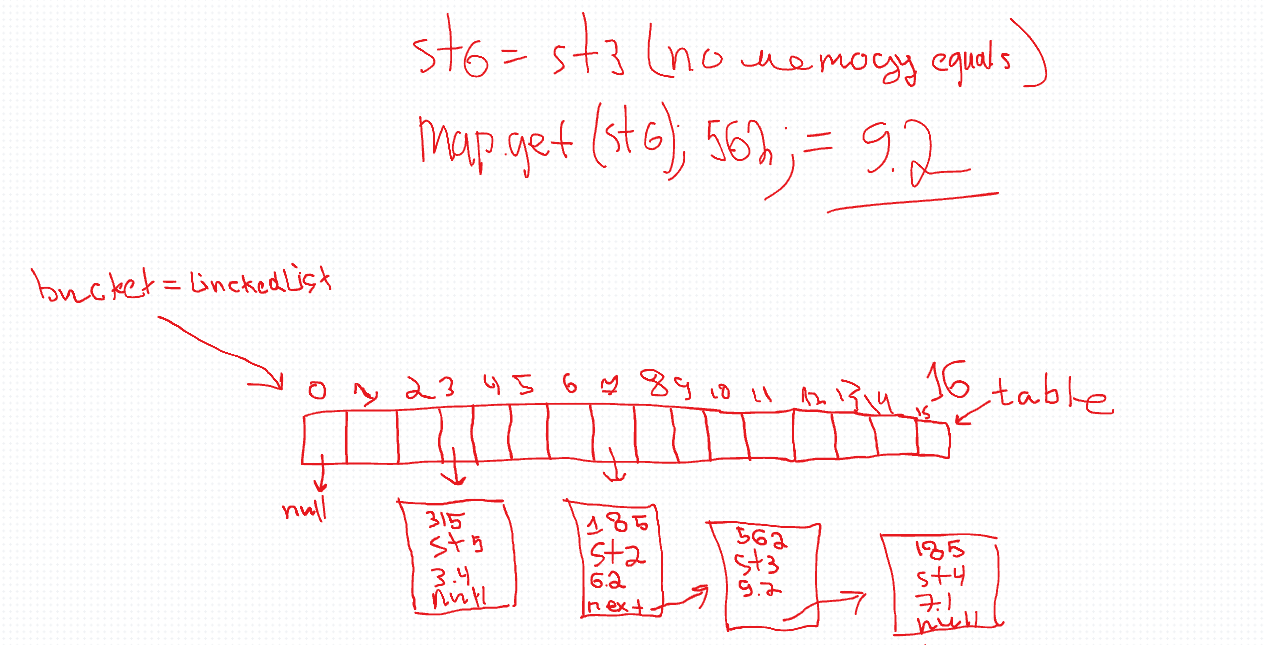 st6 = st3 (no memory equals)
map.get (st6); 562; = 9.2
bucket = LinckedList
0 1 2 3 4 5 6 7 8 9 10 11 12 13 14 15 16
table
null
315
st5
3.4
null
185
st2
6.2
next
562
st3
9.2
185
st4
7.1
null